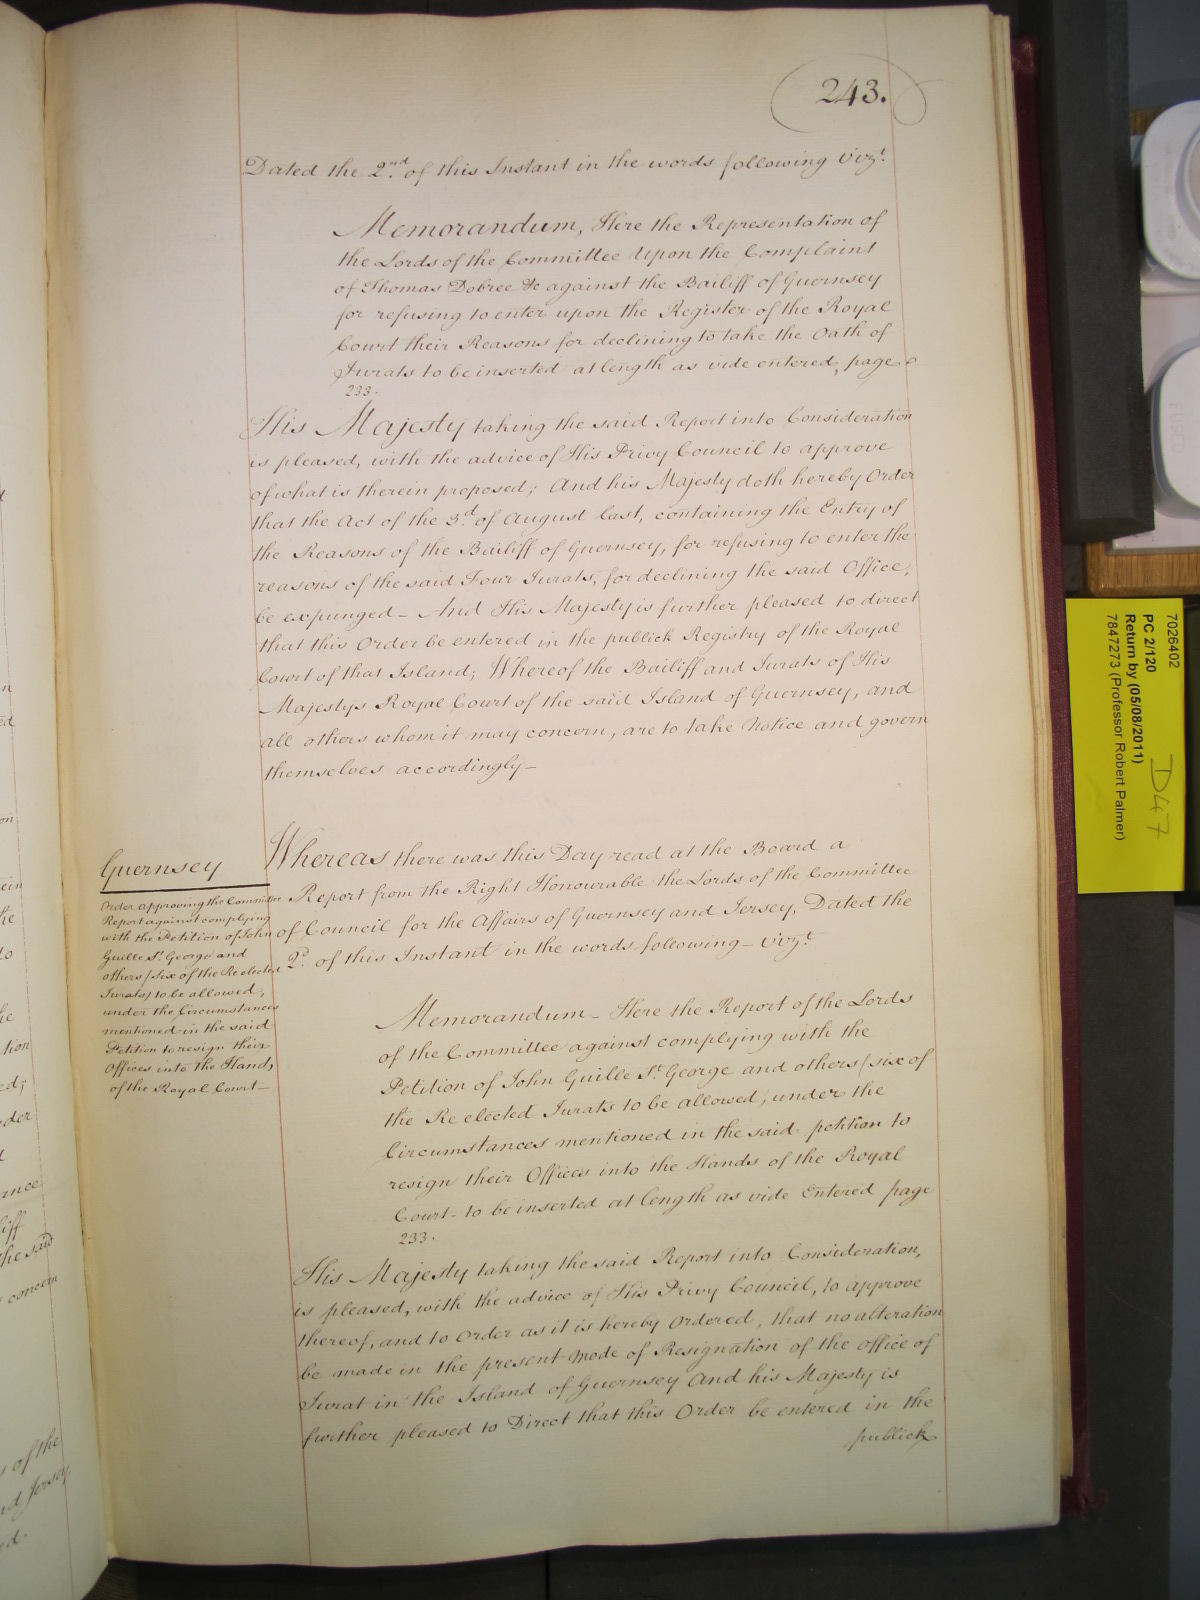 243.
Dated the 2nd. of this Instant in the words following vizt.
Memorandum, Here the Representation of
the Lords of the Committee Upon the Complaint
of Thomas Dobree &c against the Bailiff of Guernsey
for refusing to enter upon the Register of the Royal
Court their Reasons for declining to take the Oath of
Jurats to be inserted at length as vide entered, page
233.
His Majesty taking the said Report into Consideration
is pleased, with the advice of His Privy Council to approve
of what is therein proposed; And his Majesty doth hereby Order
that the Act of the 3d. of August last, containing the Entry of
the Reasons of the Bailiff of Guernsey, for refusing to enter the
reasons of the said Four Jurats, for declining the said Office,
be expunged – And His Majesty is further pleased to direct
that this Order be entered in the publick Registry of the Royal
Court of that Island; Whereof the Bailiff and Jurats of His
Majestys Royal Court of the said Island of Guernsey, and
all others whom it may concern, are to take Notice and govern
themselves accordingly –
Guernsey
Order approving the Committee
Report against complying
with the Petition of John
Guille St. George and
others (six of the Re elected
Jurats) to be allowed,
under the Circumstances
mentioned in the said
Petition to resign their
Offices into the Hands
of the Royal Court –
Whereas there was this Day read at the Board a
Report from the Right Honourable the Lords of the Committee
of Council for the Affairs of Guernsey and Jersey, Dated the
2d. of this Instant in the words following – vizt.
Memorandum – Here the Report of the Lords
of the Committee against complying with the
Petition of John Guille St. George and others (six of
the Re elected Jurats to be allowed, under the
Circumstances mentioned in the said petition to
resign their Offices into the Hands of the Royal
Court – to be inserted at length as vide Entered page
233.
His Majesty taking the said Report into Consideration,
is pleased, with the advice of His Privy Council, to approve
thereof, and to Order as it is hereby Ordered, that no alteration
be made in the present Mode of Resignation of the office of
Jurat in the Island of Guernsey And his Majesty is
further pleased to Direct that this Order be entered in the
publick
7026402
PC 2/120
Return by (05/08/2011)
7847273 (Professor Robert Palmer)
D47